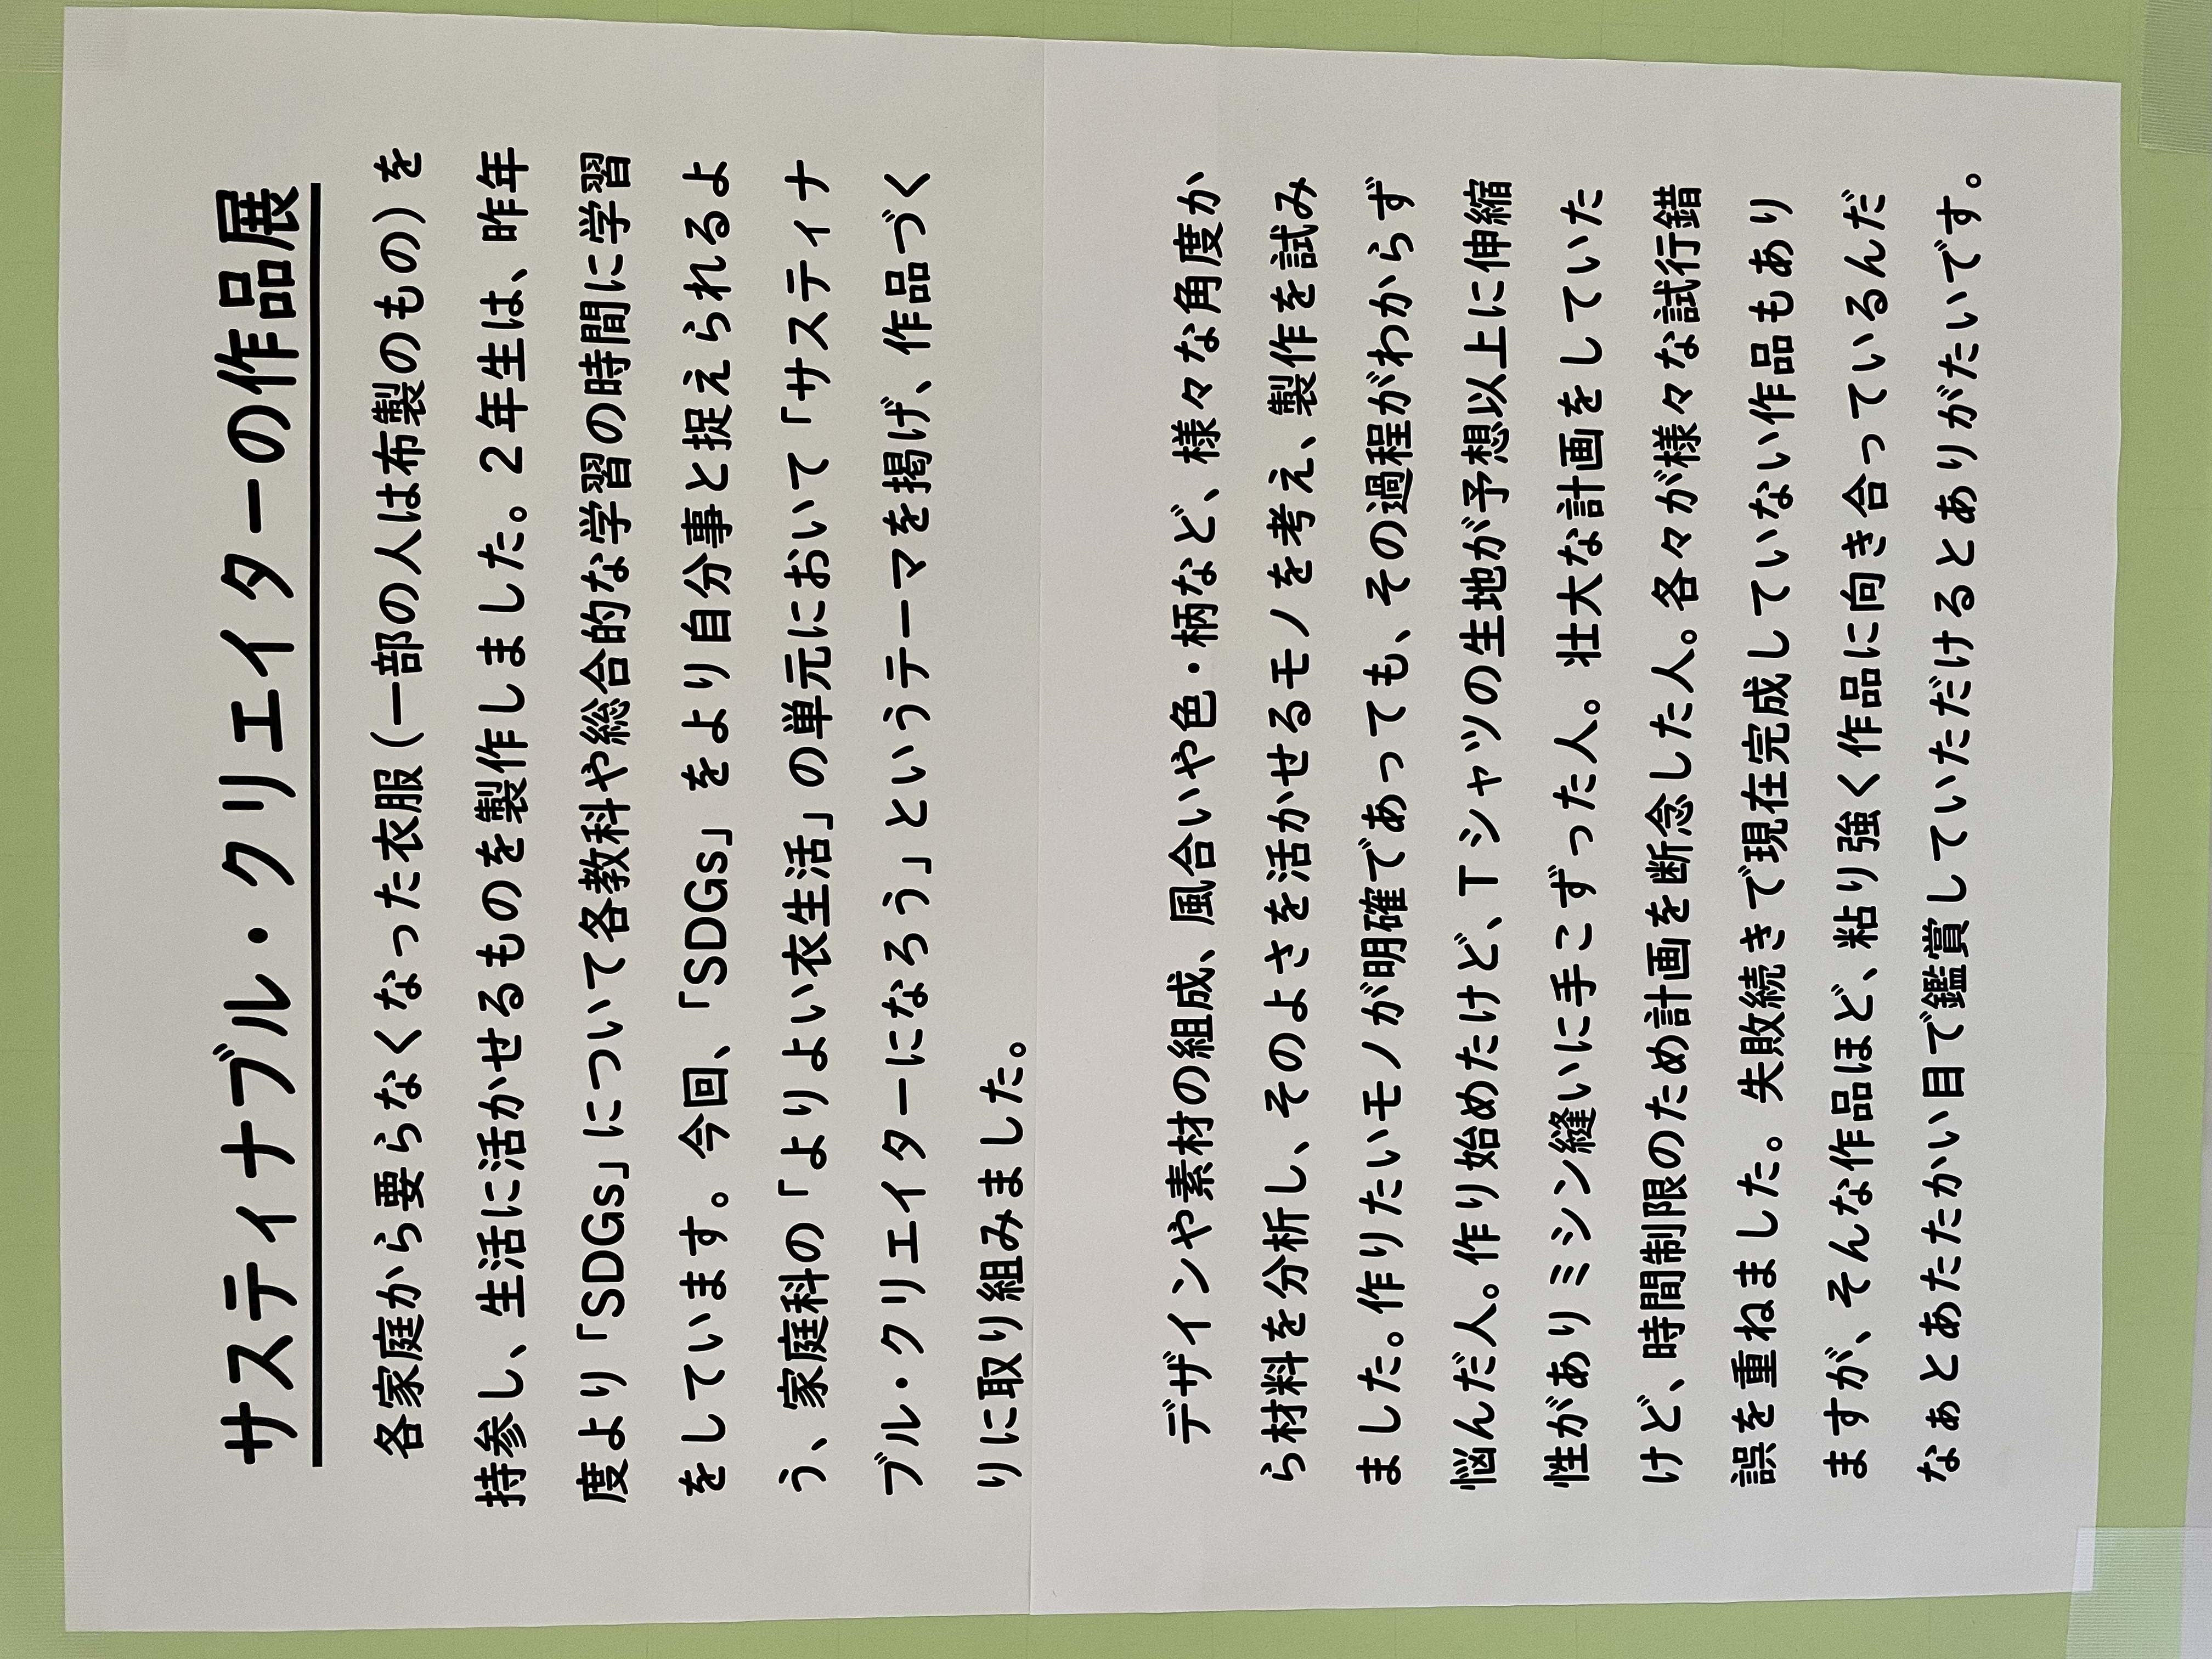 サスティナブル・クリエイターの作品展
各家庭から要らなくなった衣服（一部の人は布製のもの）を
持参し、生活に活かせるものを製作しました。２年生は、昨年
度より「SDGs」について各教科や総合的な学習の時間に学習
をしています。今回、「SDGs」をより自分事と捉えられるよ
う、家庭科の「よりよい衣生活」の単元において「サスティナ
ブル・クリエイターになろう」というテーマを掲げ、作品づく
りに取り組みました。
デザインや素材の組成、風合いや色・柄など、様々な角度か
ら材料を分析し、そのよさを活かせるモノを考え、製作を試み
ました。作りたいモノが明確であっても、その過程がわからず
悩んだ人。作り始めたけど、Ｔシャツの生地が予想以上に伸縮
性がありミシン縫いに手こずった人。壮大な計画をしていた
けど、時間制限のため計画を断念した人。各々が様々な試行錯
誤を重ねました。失敗続きで現在完成していない作品もあり
ますが、そんな作品ほど、粘り強く作品に向き合っているんだ
なぁとあたたかい目で鑑賞していただけるとありがたいです。